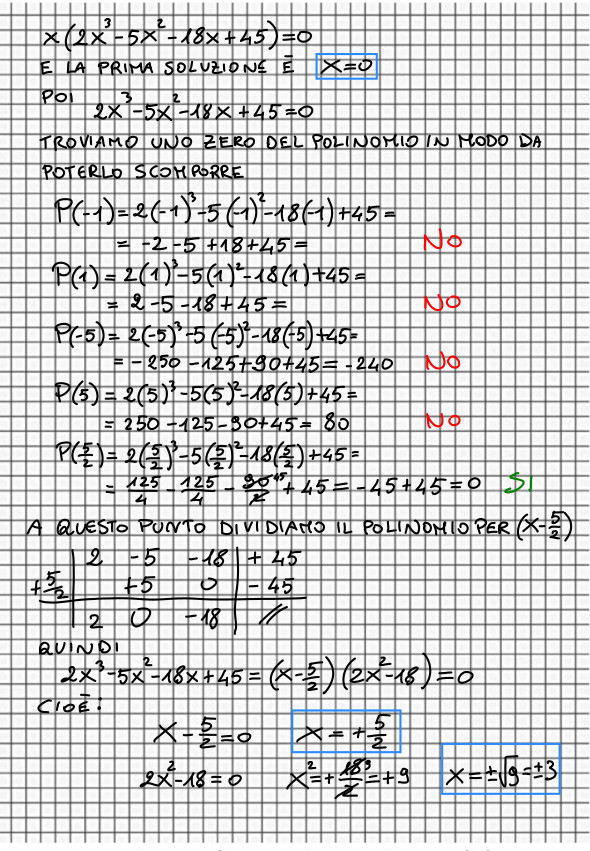 x(2x³-5x²-18x+45)=0
E LA PRIMA SOLUZIONE È x=0
POI 2x³-5x²-18x+45=0
TROVIAMO UNO ZERO DEL POLINOMIO IN MODO DA
POTERLO SCOMPORRE
P(-1)=2(-1)³-5(-1)²-18(-1)+45=
= -2-5+18+45= NO
P(1)=2(1)³-5(1)²-18(1)+45=
= 2-5-18+45= NO
P(-5)=2(-5)³-5(-5)²-18(-5)+45=
= -250-125+90+45=-240 NO
P(5)=2(5)³-5(5)²-18(5)+45=
= 250-125-90+45=80 NO
P(5/2)=2(5/2)³-5(5/2)²-18(5/2)+45=
= 125/4-125/4-90⁴⁵/2+45=-45+45=0 SI
A QUESTO PUNTO DIVIDIAMO IL POLINOMIO PER (x-5/2)
2 -5 -18 +45
+5/2 +5 0 -45
2 0 -18 //
QUINDI
2x³-5x²-18x+45=(x-5/2)(2x²-18)=0
CIOÈ:
x-5/2=0 x=+5/2
2x²-18=0 x²=+18⁹/2=+9 x=±√9=±3